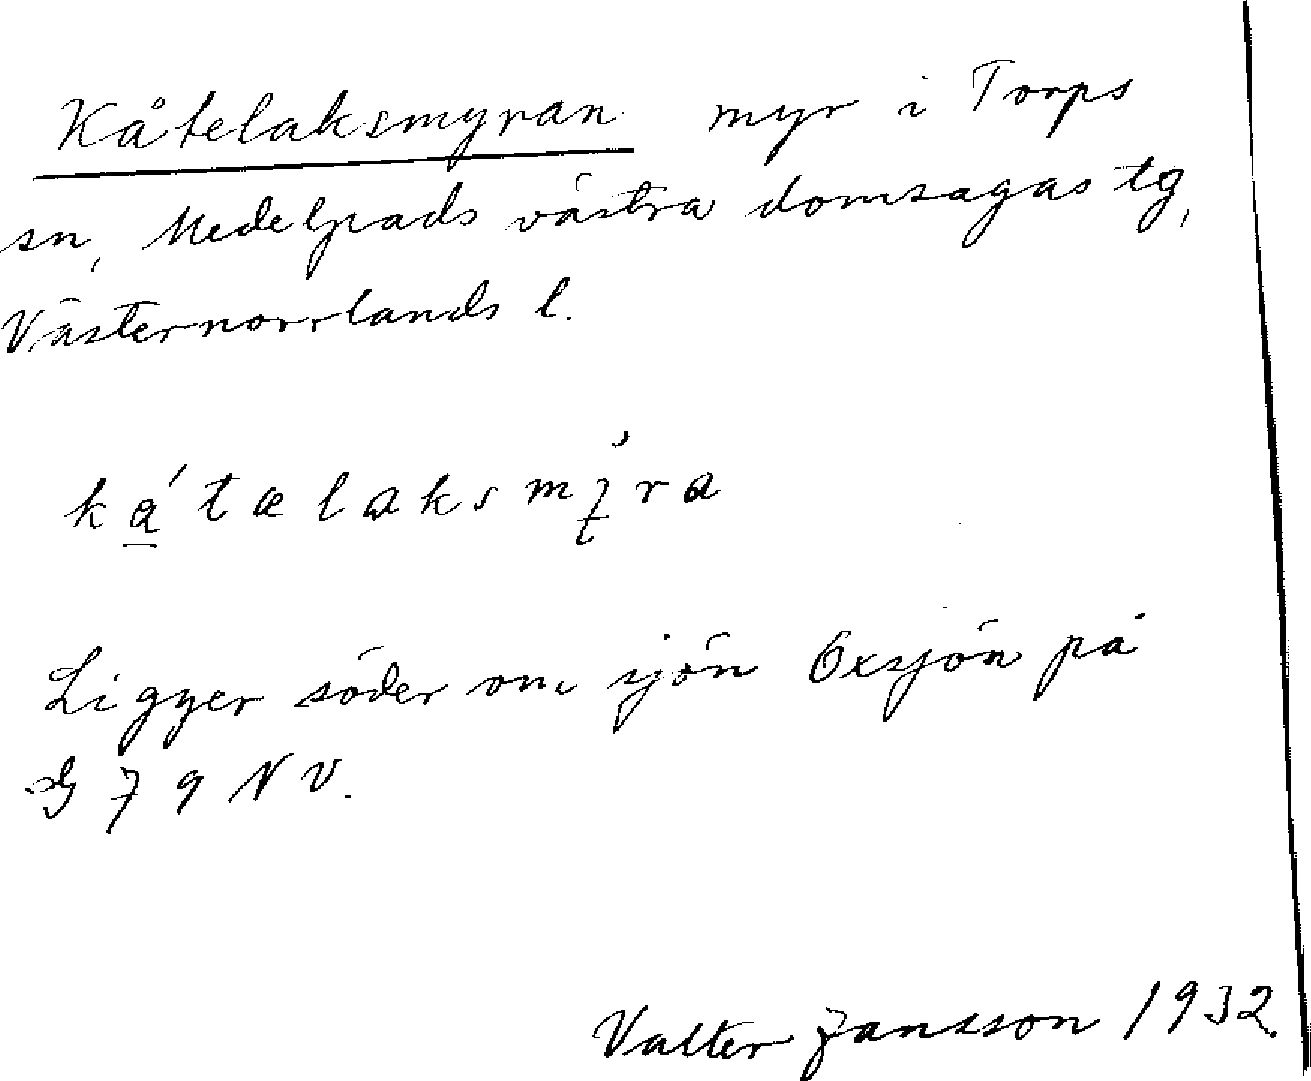 Kåtelaksmyran myr i Torps
sn, Medelpads västra domsagas tg,
Västernorrlands l.
Ligger söder om sjön Öxsjön på
G 79 NV.
Valter Jansson 1932.